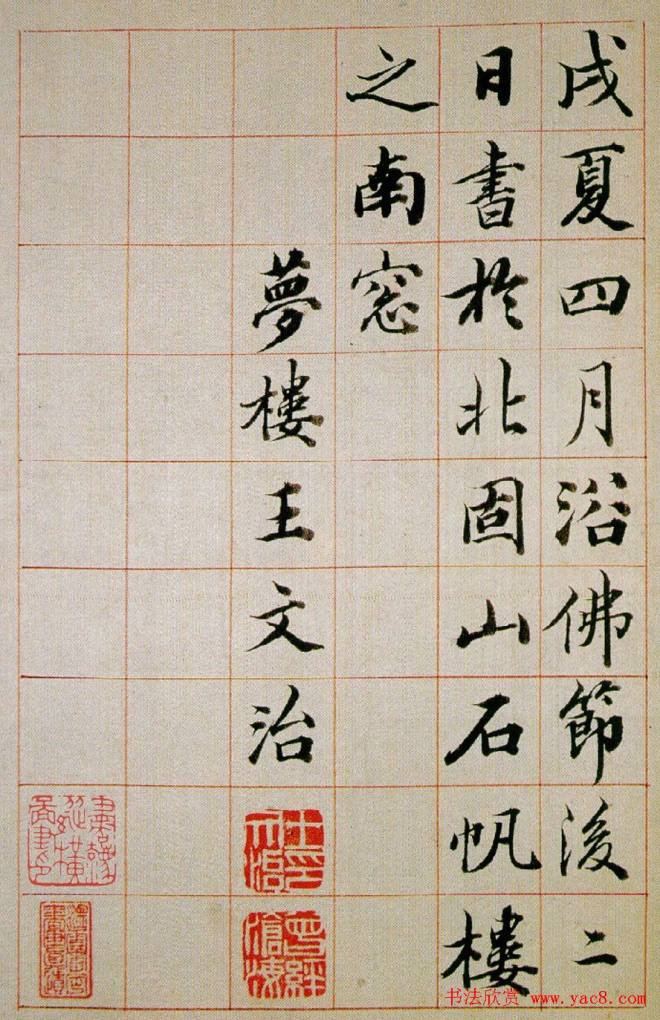 戌夏四月浴佛節後二
日書於北固山石帆樓
之南窓
夢樓王文治
曾經滄海
书法欣赏 www.yac8.com